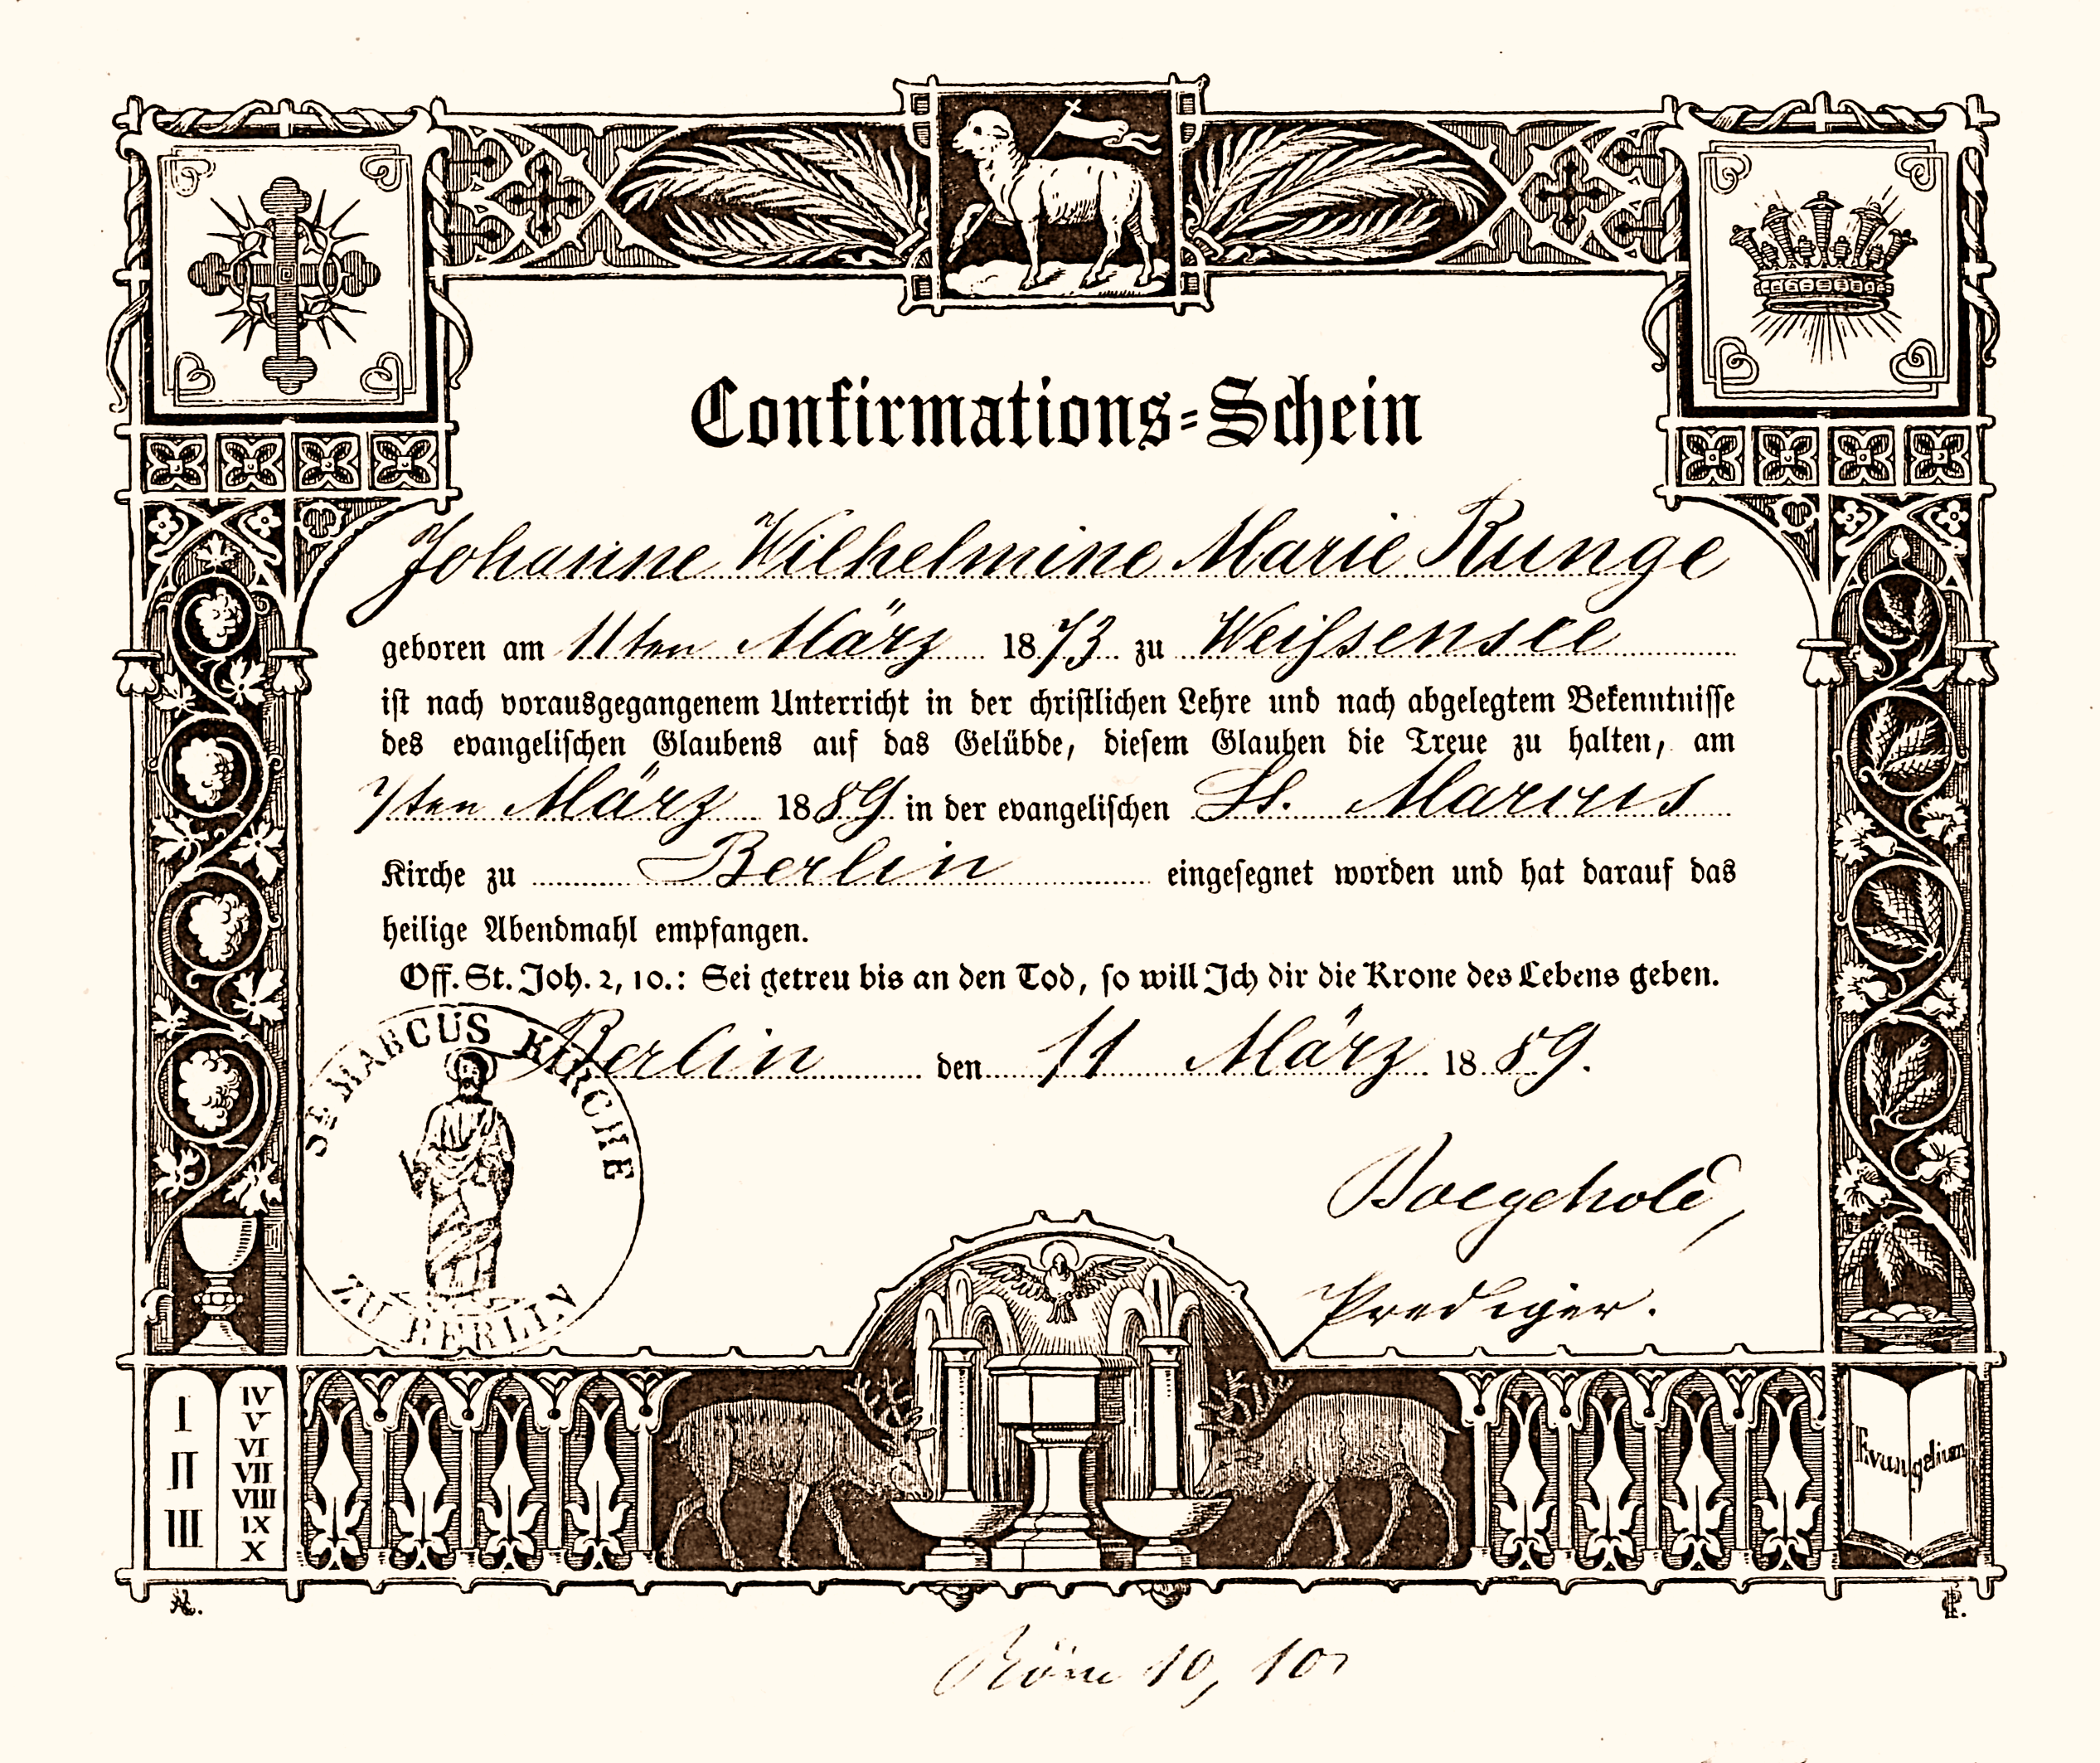 Confirmations-Schein
Johanne Wilhelmine Marie Runge
geboren am 11ten März 1873 zu Weißensee
ist nach vorausgegangenem Unterricht in der christlichen Lehre und nach abgelegtem Bekenntnisse
des evangelischen Glaubens auf das Gelübde, diesem Glauben die Treue zu halten, am
7ten März 1889 in der evangelischen St. Marcus
Kirche zu Berlin eingesegnet worden und hat darauf das
heilige Abendmahl empfangen.
Off. St. Joh. 2, 10.: Sei getreu bis an den Tod, so will Ich dir die Krone des Lebens geben.
Berlin den 11 März 1889.
ST MARCUS KIRCHE
ZU BERLIN
Boegehold,
Prediger.
I
II
III
IV
V
VI
VII
VIII
IX
X
Evangelium
Röm 10, 10